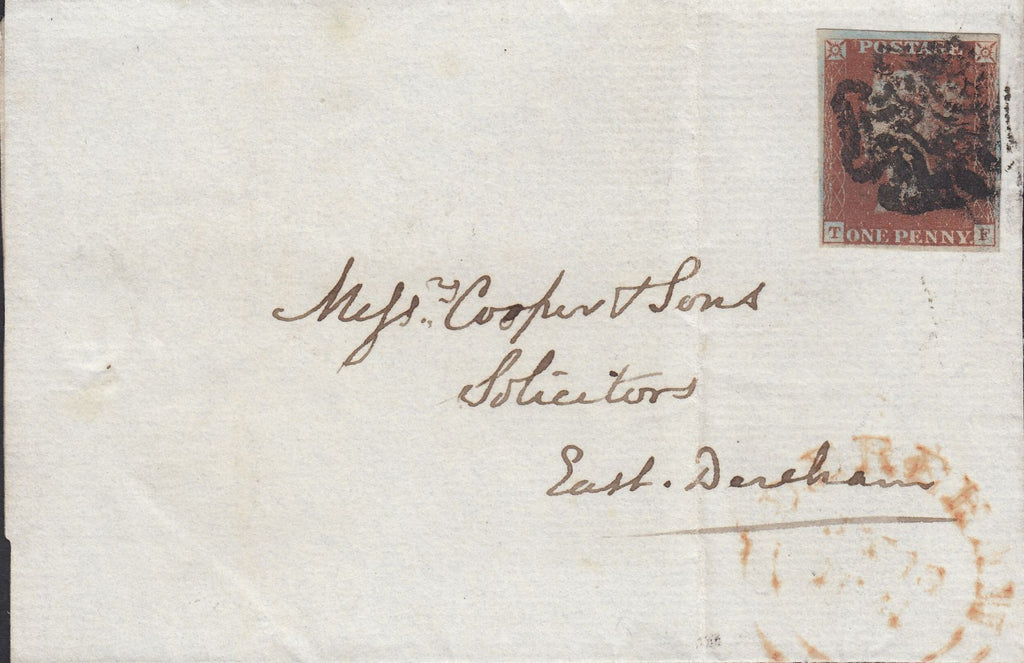 POSTAGE
T ONE PENNY. F
Messrs. Cooper & Sons
Solicitors
East. Dereham